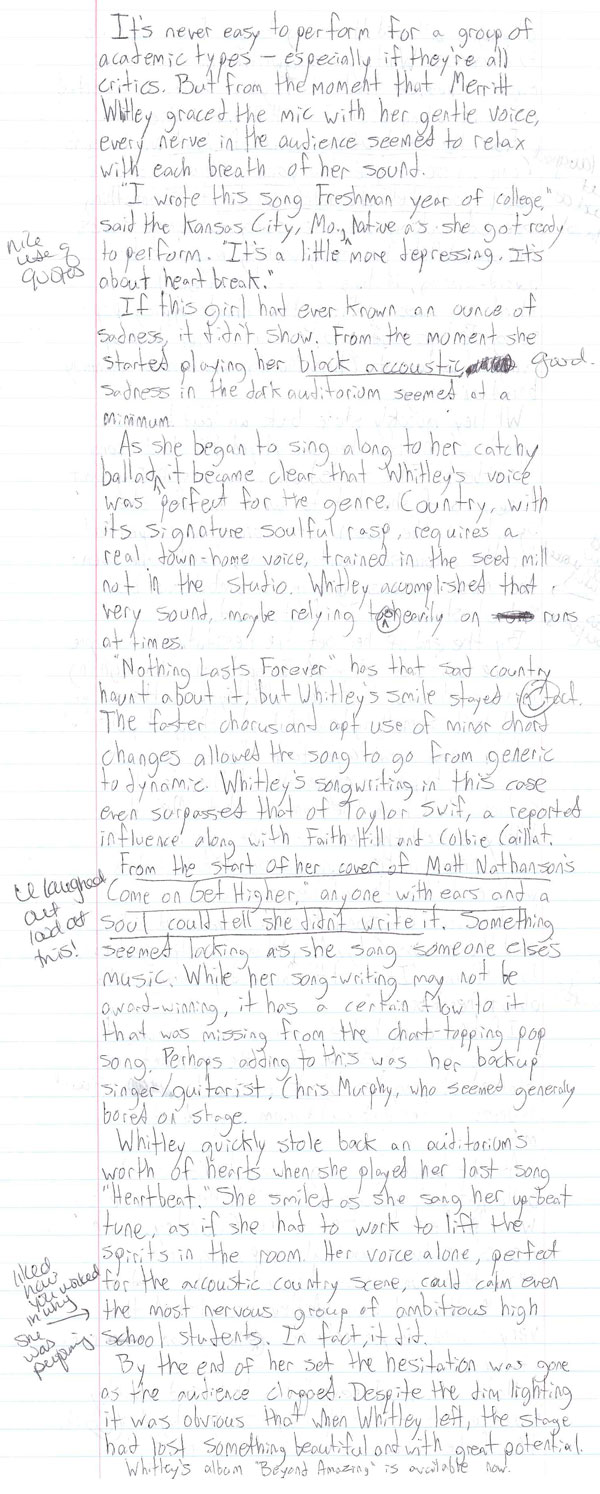 It's never easy to perform for a group of
academic types - especially if they're all
critics. But from the moment that Merritt
Whitley graced the mic with her gentle voice,
every nerve in the audience seemed to relax
with each breath of her sound.
"I wrote this song Freshman year of college,"
said the Kansas City, Mo., Native as she got ready
nice use of quotes
to perform. "It's a little more depressing. It's
about heart break."
If this girl had ever known an ounce of
sadness, it didn't show. From the moment she
started playing her black accoustic good.
sadness in the dark auditorium seemed at a
minimum.
As she began to sing along to her catchy
ballad, it became clear that Whitley's voice
was perfect for the genre. Country, with
its signature soulful rasp, requires a
real down-home voice, trained in the seed mill
not in the studio. Whitley accomplished that
very sound, maybe relying too heavily on runs
at times.
"Nothing Lasts Forever" has that sad country
haunt about it, but Whitley's smile stayed
The faster chorus and apt use of minor chord
changes allowed the song to go from generic
to dynamic. Whitley's songwriting in this case
even surpassed that of Taylor Swif, a reported
influence along with Faith Hill and Colbie Caillat.
From the start of her cover of Matt Nathanson's
I laughed out loud at this!
Come on Get Higher," anyone with ears and a
soul could tell she didn't write it. Something
seemed lacking as she sang someone elses
music. While her song-writing may not be
award-winning, it has a certain flow to it
that was missing from the chart-topping pop
song. Perhaps adding to this was her backup
singer/guitarist, Chris Murphy, who seemed generally
bored on stage.
Whitley quickly stole back an auditorium's
worth of hearts when she played her last song
"Heartbeat." She smiled as she sang her up-beat
tune, as if she had to work to lift the
spirits in the room. Her voice alone, perfect
liked how you worked in why she was
for the accoustic country scene, could calm even
the most nervous group of ambitious high
school students. In fact, it did.
By the end of her set the hesitation was gone
as the audience clapped. Despite the dim lighting
it was obvious that when Whitley left, the stage
had lost something beautiful and with great potential.
Whitley's album "Beyond Amazing" is available now.